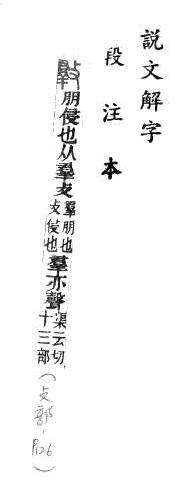 説文解字
段注本
朋侵也从羣攴
羣朋也
攴侵也
羣亦聲
渠云切
十三部
(攴部,P126)